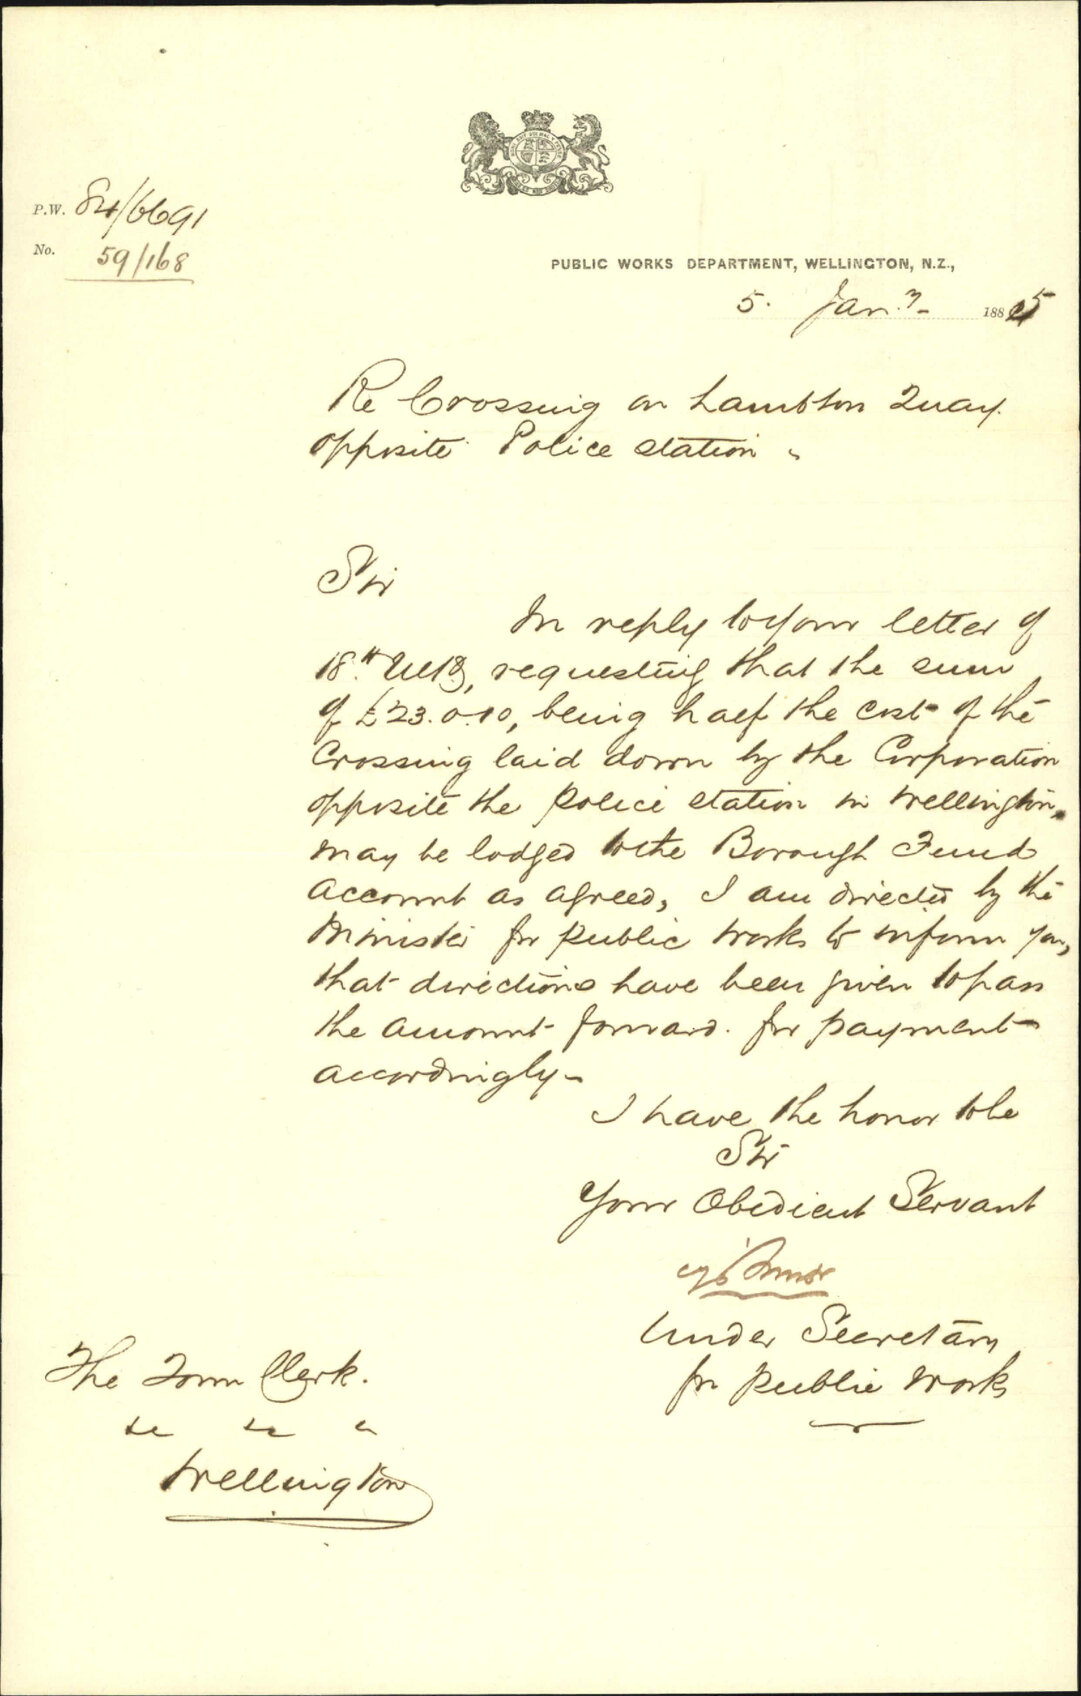 P.W. 84/6691
No. 59/168
PUBLIC WORKS DEPARTMENT, WELLINGTON, N.Z.,
5. Jany. 1885
Re Crossing on Lambton Quay
opposite Police station
Sir
In reply to your letter of
18th Ulto, requesting that the sum
of £23.0.10, being half the cost of the
Crossing laid down by the Corporation
opposite the Police station in Wellington,
may be lodged to the Borough Fund
Account as agreed, I am directed by the
Minister for Public Works to inform you,
that directions have been given to pass
the amount forward for payment
accordingly-
I have the honor to be
Sir
Your Obedient Servant
Under Secretary
for Public Works
The Town Clerk.
&c &c &c
Wellington